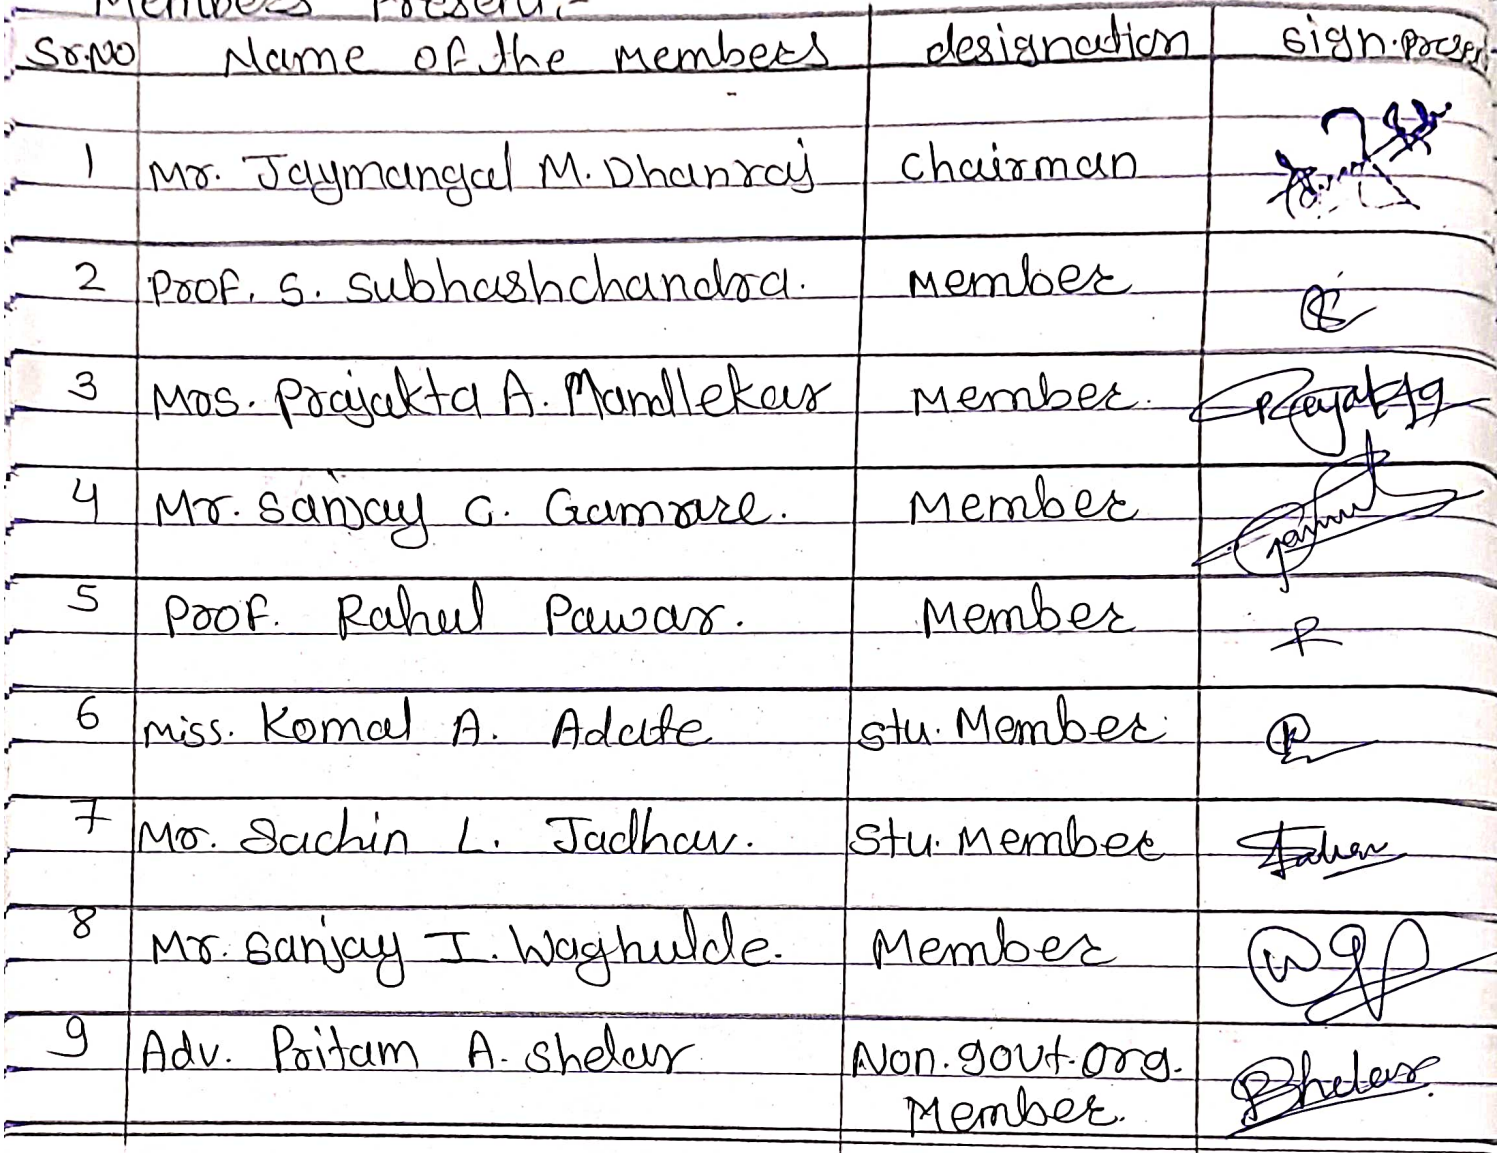 Members Present:-
Sr.No Name of the members designation sign.
1 Mr. Jaymangal M. Dhanraj Chairman
2 Prof. S. Subhashchandra. Member
3 Mrs. Prajakta A. Mandlekar Member.
4 Mr. Sanjay G. Gamare. Member
5 Prof. Rahul Pawar. Member
6 Miss. Komal A. Adate Stu. Member
7 Mr. Sachin L. Jadhav. Stu. Member
8 Mr. Sanjay I. Waghulde. Member
9 Adv. Pritam A. Shelar Non. govt. org.
Member.